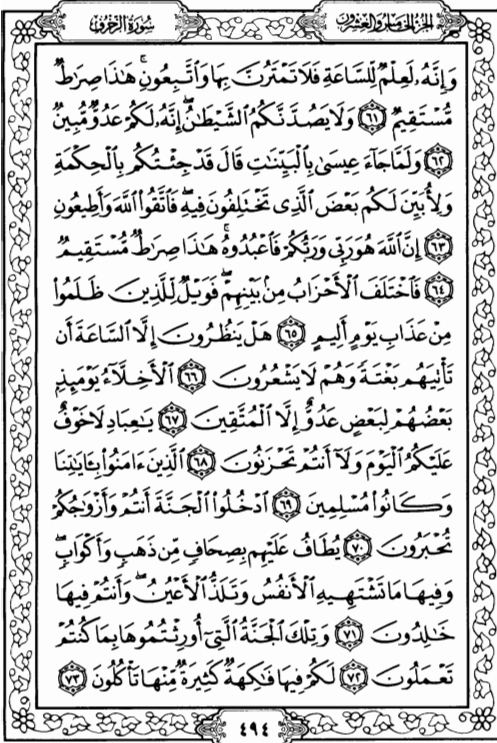 الجزء الخامس والعشرون
سورة الزخرف
وَإِنَّهُۥ لَعِلْمٌ لِّلسَّاعَةِ فَلَا تَمْتَرُنَّ بِهَا وَٱتَّبِعُونِ ۚ هَٰذَا صِرَٰطٌ
مُّسْتَقِيمٌ ٦١ وَلَا يَصُدَّنَّكُمُ ٱلشَّيْطَٰنُ ۖ إِنَّهُۥ لَكُمْ عَدُوٌّ مُّبِينٌ
٦٢ وَلَمَّا جَآءَ عِيسَىٰ بِٱلْبَيِّنَٰتِ قَالَ قَدْ جِئْتُكُم بِٱلْحِكْمَةِ
وَلِأُبَيِّنَ لَكُم بَعْضَ ٱلَّذِى تَخْتَلِفُونَ فِيهِ ۖ فَٱتَّقُوا۟ ٱللَّهَ وَأَطِيعُونِ
٦٣ إِنَّ ٱللَّهَ هُوَ رَبِّى وَرَبُّكُمْ فَٱعْبُدُوهُ ۚ هَٰذَا صِرَٰطٌ مُّسْتَقِيمٌ
٦٤ فَٱخْتَلَفَ ٱلْأَحْزَابُ مِنۢ بَيْنِهِمْ ۖ فَوَيْلٌ لِّلَّذِينَ ظَلَمُوا۟
مِنْ عَذَابِ يَوْمٍ أَلِيمٍ ٦٥ هَلْ يَنظُرُونَ إِلَّا ٱلسَّاعَةَ أَن
تَأْتِيَهُم بَغْتَةً وَهُمْ لَا يَشْعُرُونَ ٦٦ ٱلْأَخِلَّآءُ يَوْمَئِذٍۭ
بَعْضُهُمْ لِبَعْضٍ عَدُوٌّ إِلَّا ٱلْمُتَّقِينَ ٦٧ يَٰعِبَادِ لَا خَوْفٌ
عَلَيْكُمُ ٱلْيَوْمَ وَلَآ أَنتُمْ تَحْزَنُونَ ٦٨ ٱلَّذِينَ ءَامَنُوا۟ بِـَٔايَٰتِنَا
وَكَانُوا۟ مُسْلِمِينَ ٦٩ ٱدْخُلُوا۟ ٱلْجَنَّةَ أَنتُمْ وَأَزْوَٰجُكُمْ
تُحْبَرُونَ ٧٠ يُطَافُ عَلَيْهِم بِصِحَافٍ مِّن ذَهَبٍ وَأَكْوَابٍ ۖ
وَفِيهَا مَا تَشْتَهِيهِ ٱلْأَنفُسُ وَتَلَذُّ ٱلْأَعْيُنُ ۖ وَأَنتُمْ فِيهَا
خَٰلِدُونَ ٧١ وَتِلْكَ ٱلْجَنَّةُ ٱلَّتِىٓ أُورِثْتُمُوهَا بِمَا كُنتُمْ
تَعْمَلُونَ ٧٢ لَكُمْ فِيهَا فَٰكِهَةٌ كَثِيرَةٌ مِّنْهَا تَأْكُلُونَ ٧٣
٤٩٤